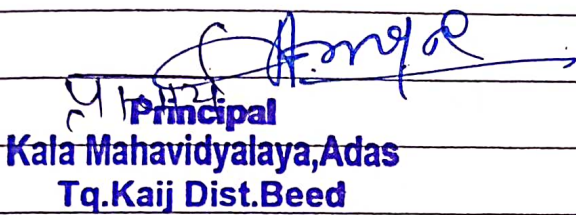 प्राचार्य
Principal
Kala Mahavidyalaya,Adas
Tq.Kaij Dist.Beed